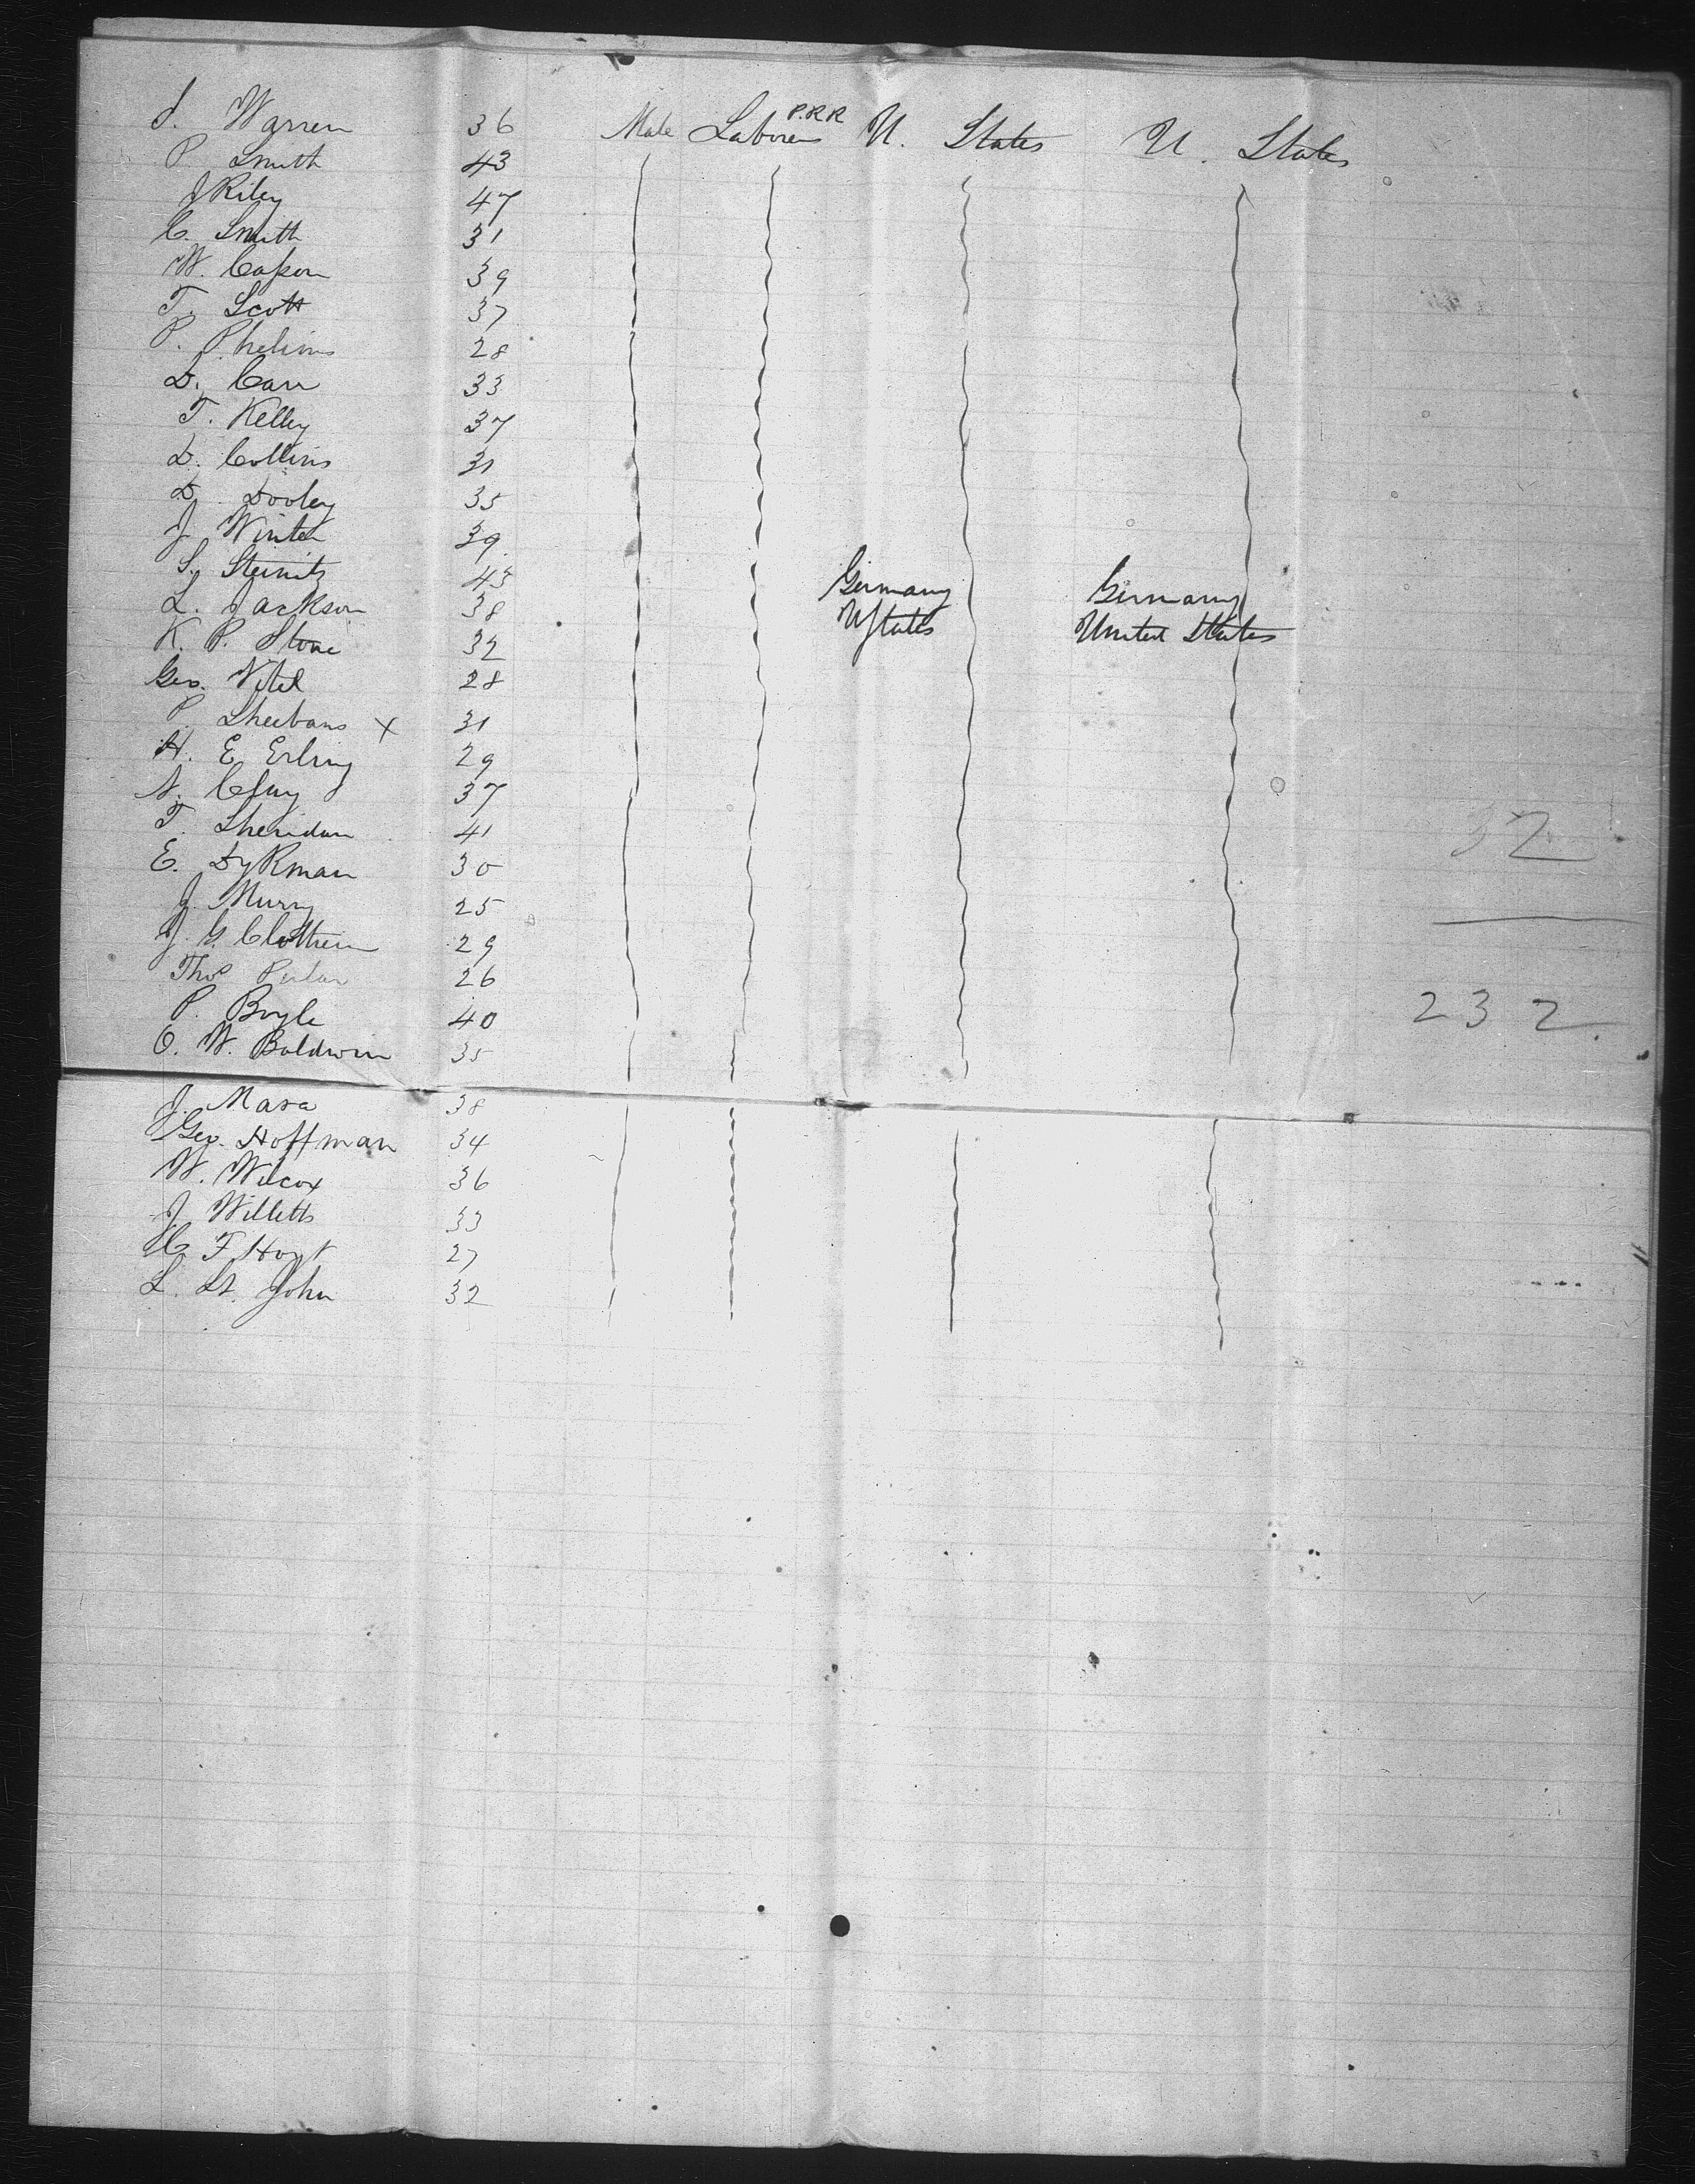 S. Warren 36 Male Laborers P.R.R U. States U. States
P. Smith 43
J Riley 47
C. Smith 31
W. Cason 39
T. Scott 37
P. Phelims 28
D. Carr 33
T. Kelley 37
D. Collins 31
D. Dooley 35
J. Winter 39
S. Steinitz 43 Germany Germany
L. Jackson 38 U States United States
K. P. Stone 32
Geo. Vitel 28
P. x 31
H. E Erling 29
N. Clay 37
T. Sheridan 41
32
E. Dykman 30
J. Murry 25
J. G. Clothier 29
Thos 26
P. Boyle 40
232
O. W. Baldwin 35
J. Mara 38
Geo. Hoffman 34
W. Wilcox 36
J. Willetts 33
C F. Hoyt 27
L. St. John 32